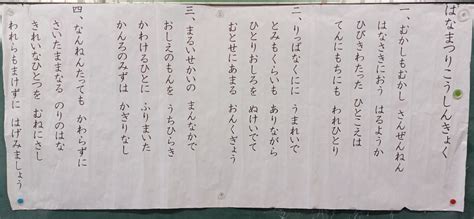 はなまつりこうしんきょく
一、むかしもむかし さんぜんねん
はなさきにおう はるようか
ひびきわたった ひとこえは
てんにもちにも われひとり
二、りっぱなくにに うまれいで
とみもくらいも ありながら
ひとりおしろを ぬけいでて
むとせにあまる おんくぎょう
三、まるいせかいの まんなかで
おしえのもんを うちひらき
かわけるひとに ふりまいた
かんろのみずは かぎりなし
四、なんねんたっても かわらずに
さいたままなる のりのはな
きれいなひとつを むねにさし
われらもまけずに はげみましょう